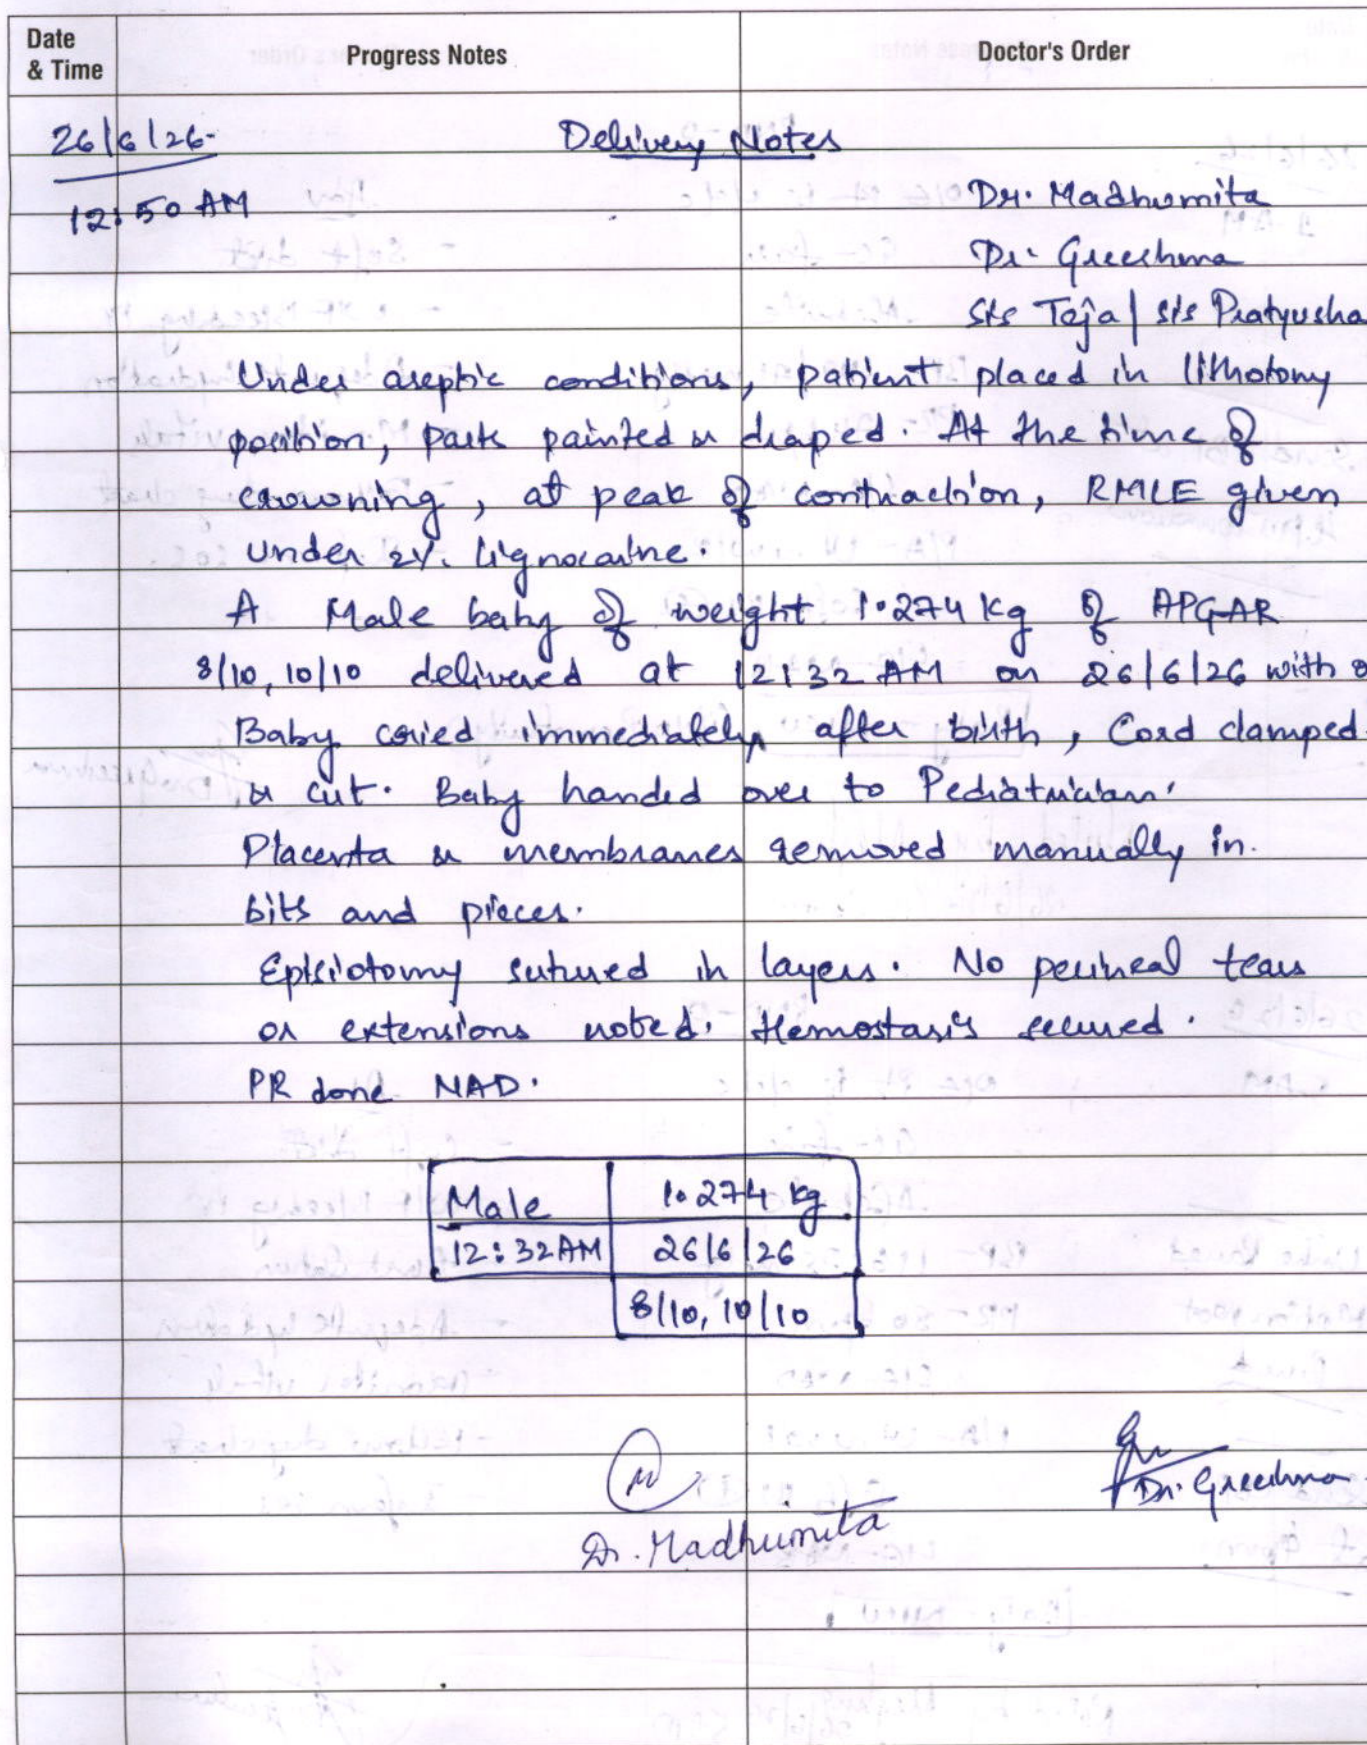 Date & Time
Progress Notes
Doctor's Order
26/6/26
Delivery Notes
12:50 AM
Dr. Madhumita
Dr. Greeshma
Sis Teja / Sis Pratyusha
Under aseptic conditions, patient placed in lithotomy
position, parts painted & draped. At the time of
crowning, at peak of contraction, RMLE given
under 2% lignocaine.
A Male baby of weight 1.274 kg of APGAR
8/10, 10/10 delivered at 12:32 AM on 26/6/26 with
Baby cried immediately after birth, Cord clamped
& cut. Baby handed over to Pediatrician.
Placenta & membranes removed manually in
bits and pieces.
Episiotomy sutured in layers. No perineal tears
or extensions noted. Hemostasis secured.
PR done NAD.
Male 1.274 kg
12:32AM 26/6/26
8/10, 10/10
Dr. Greeshma
Dr. Madhumita